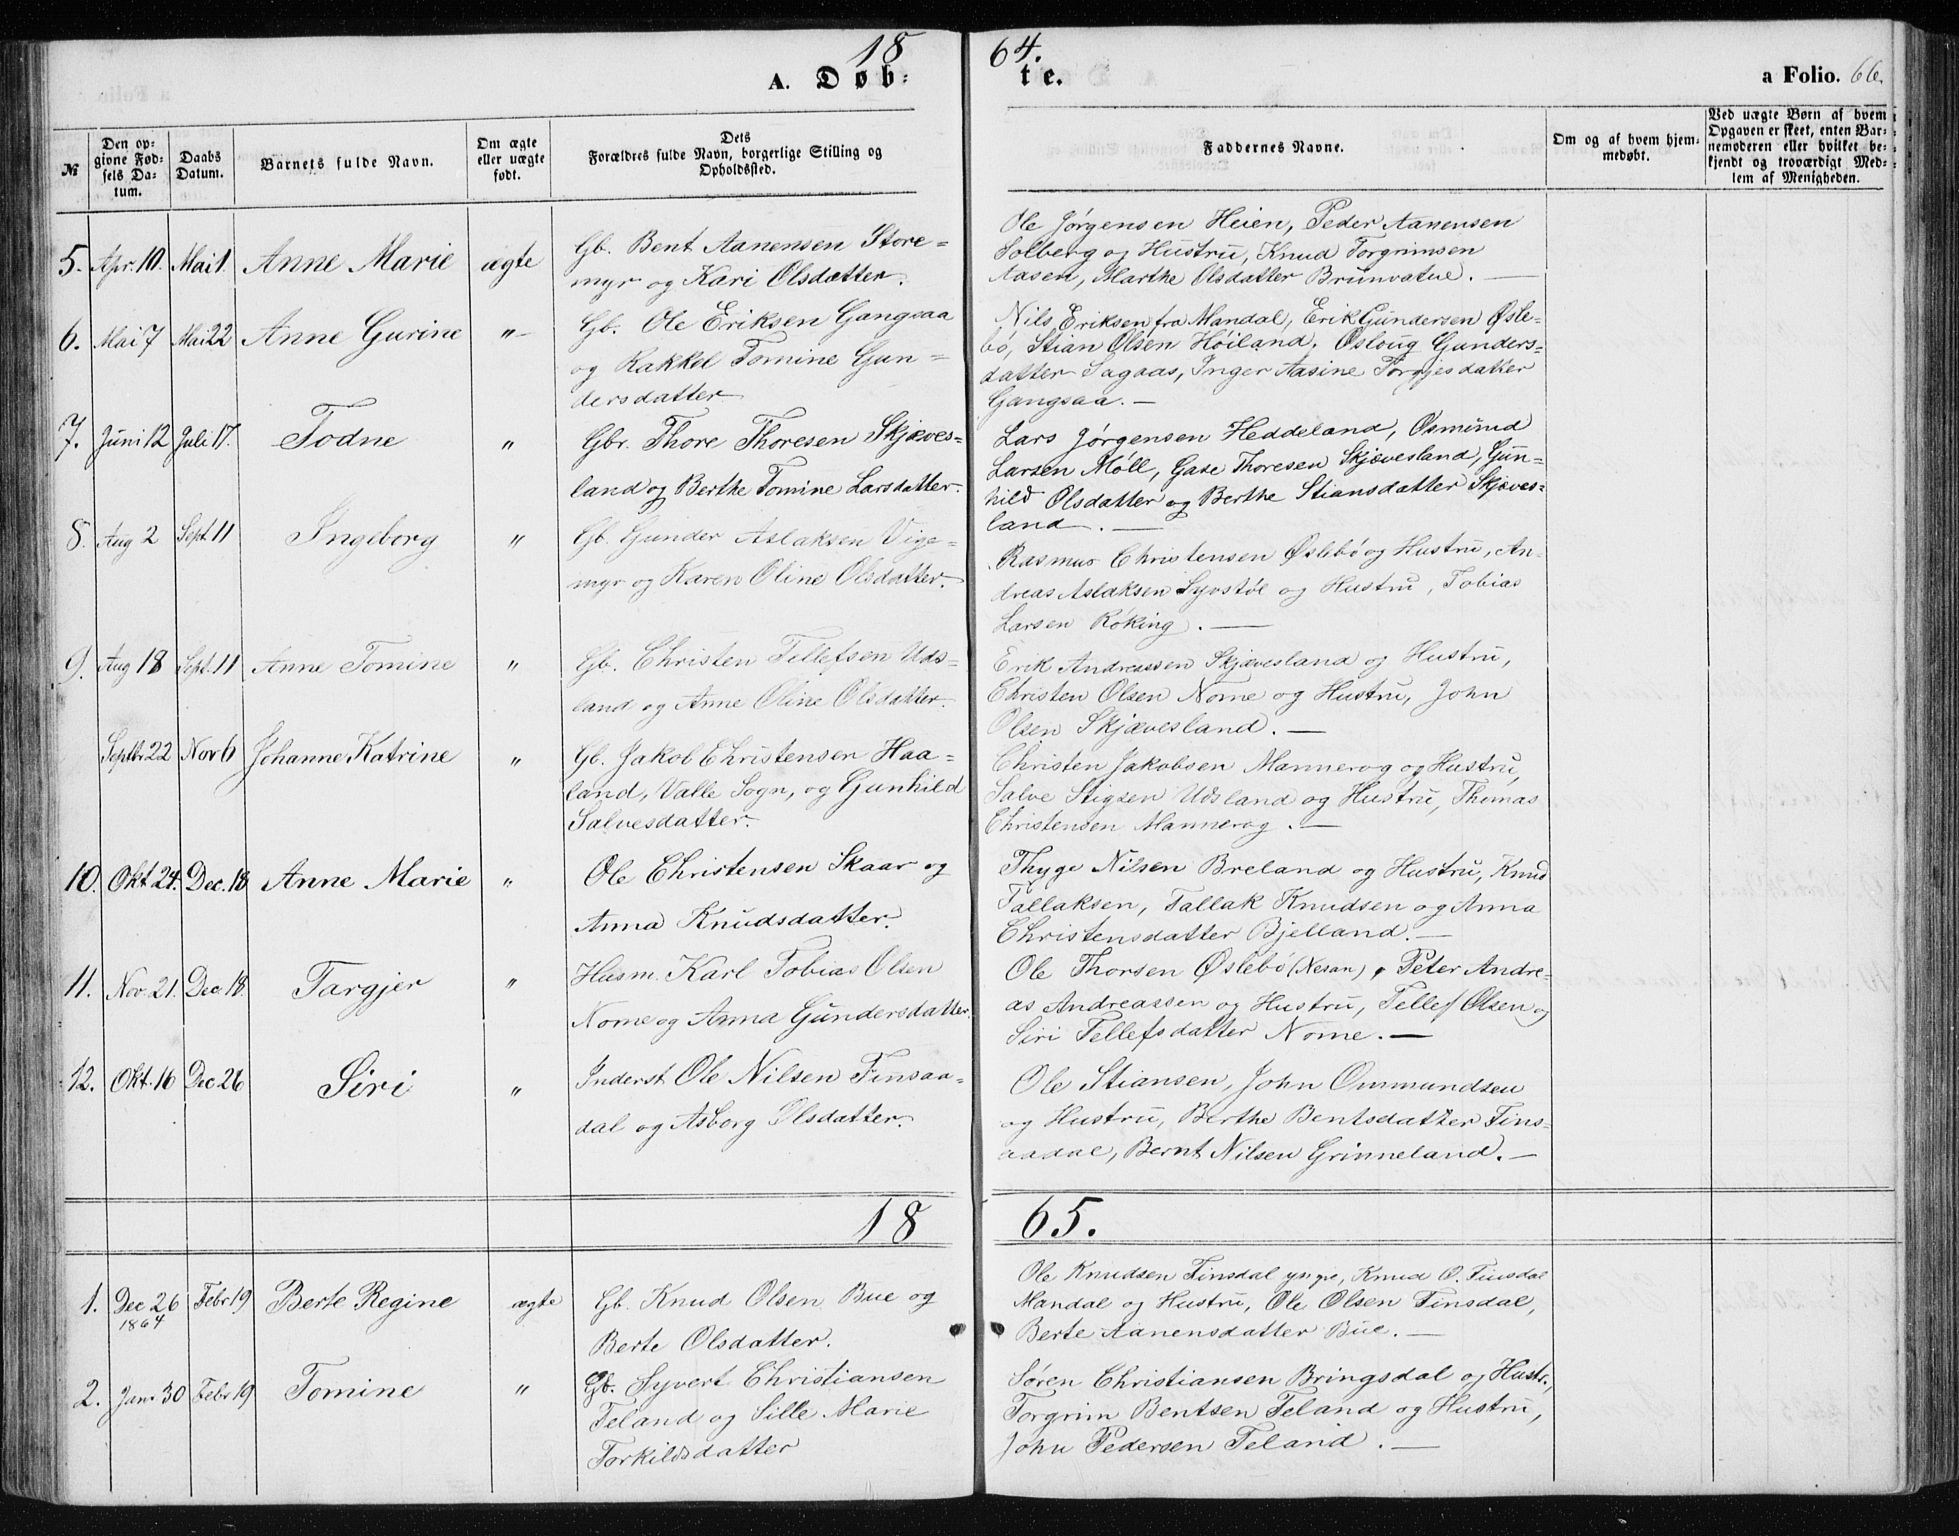 18 64.
A. Døb- te. a Folio. 66.
№
Den op-
givne Fød-
sels Da-
tum.
Daabs
Datum.
Barnets fulde Navn.
Om ægte
eller uægte
født.
Dets
Forældres fulde Navn, borgerlige Stilling og
Opholdssted.
Faddernes Navne.
Om og af hvem hjem-
medøbt.
Ved uægte Børn af hvem
Opgaven er skeet, enten Bar-
nemoderen eller hvilket be-
kjendt og troværdigt Med-
lem af Menigheden.
5. Apr. 10. Mai 1. Anne Marie ægte
Gb. Bent Aanensen Store-
myr og Kari Olsdatter.
Ole Jörgensen Heien, Peder Aanensen
Solberg og Hustru, Knud Torgrimsen
Aasen, Marthe Olsdatter Brunvatne. —
6. Mai 7 Mai 22 Anne Gurine "
Gb. Ole Eriksen Gangsaa
og Rakkel Tomine Gun-
dersdatter
Nils Eriksen fra Mandal, Erik Gundersen Øsle-
bö, Stian Olsen Höiland, Osloug Gunders-
datter Sagaas, Inger Aasine Torgjesdatter
Gangsaa. —
7. Juni 12 Juli 17. Todne "
Gbr. Thore Thoresen Skjæves-
land og Berthe Tomine Larsdatter.
Lars Jörgensen Heddeland, Osmund
Larsen Möll, Gase Thoresen Skjævesland, Gun-
hild Olsdatter og Berthe Stiansdatter Skjæves-
land. —
8. Aug 2 Sept. 11 Ingeborg "
Gb. Gunder Aslaksen Vige-
myr og Karen Oline Olsdatter.
Rasmus Christensen Øslebö og Hustru, An-
dreas Aslaksen Syvstöl og Hustru, Tobias
Larsen Röking. —
9. Aug 18 Sept. 11 Anne Tomine "
Gb. Christen Tellefsen Uds-
land og Anne Oline Olsdatter.
Erik Andreassen Skjævesland og Hustru,
Christen Olsen Nome og Hustru, John
Olsen Skjævesland. —
Septbr 22 Nov 6 Johanne Katrine "
Gb. Jakob Christensen Haa-
land, Valle Sogn, og Gunhild
Salvesdatter.
Christen Jakobsen Mannerog og Hustru,
Salve Stigsen Udsland og Hustru, Thomas
Christensen Mannerog. —
10. Okt 24. Dec. 18 Anne Marie "
Ole Christensen Skaar og
Anna Knudsdatter.
Thyge Nilsen Breland og Hustru, Knud
Tallaksen, Tallak Knudsen og Anna
Christensdatter Bjelland. —
11. Nov. 21. Dec. 18. Targjer "
Husm. Karl Tobias Olsen
Nome og Anna Gundersdatter.
Ole Thorsen Øslebö (Nesan), Peter Andre-
as Andreassen og Hustru, Tellef Olsen og
Siri Tellefsdatter Nome. —
12. Okt. 16 Dec 26 Siri "
Inderst Ole Nilsen Finsaa-
dal og Asborg Olsdatter.
Ole Stiansen, John Ommundsen
og Hustru, Berthe Bentsdatter Fins-
aadal, Bernt Nilsen Grinneland. —
18 65.
1. Dec 26
1864 Febr 19 Berte Regine ægte
Gb. Knud Olsen Bue og
Berte Olsdatter.
Ole Knudsen Finsdal yngre, Knud O. Finsdal
Mandal og Hustru, Ole Olsen Finsdal,
Berte Aanensdatter Bue. —
2. Jan. 30 Febr 19 Tomine "
Gb. Syvert Christiansen
Feland og Sille Marie
Torkildsdatter
Sören Christiansen Bringsdal og Hustr.,
Torgrim Bentsen Feland og Hustru,
John Pedersen Feland. —